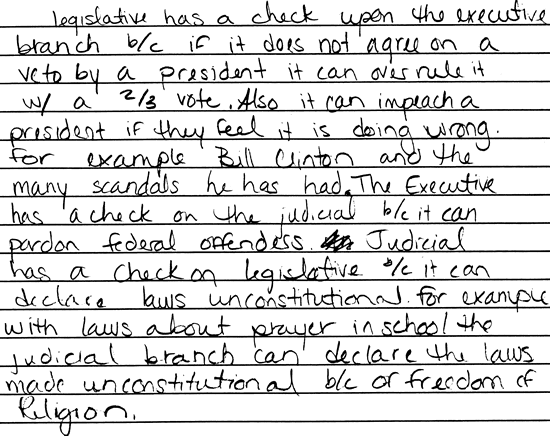 legislative has a check upon the executive
branch b/c if it does not agree on a
veto by a president it can overrule it
w/ a 2/3 vote. Also it can impeach a
president if they feel it is doing wrong.
for example Bill Clinton and the
many scandals he has had. The Executive
has a check on the judicial b/c it can
pardon federal offendess. Judicial
has a check on legislative b/c it can
declare laws unconstitutional. for example
with laws about prayer in school the
judicial branch can declare the laws
made unconstitutional b/c of freedom of
Religion.